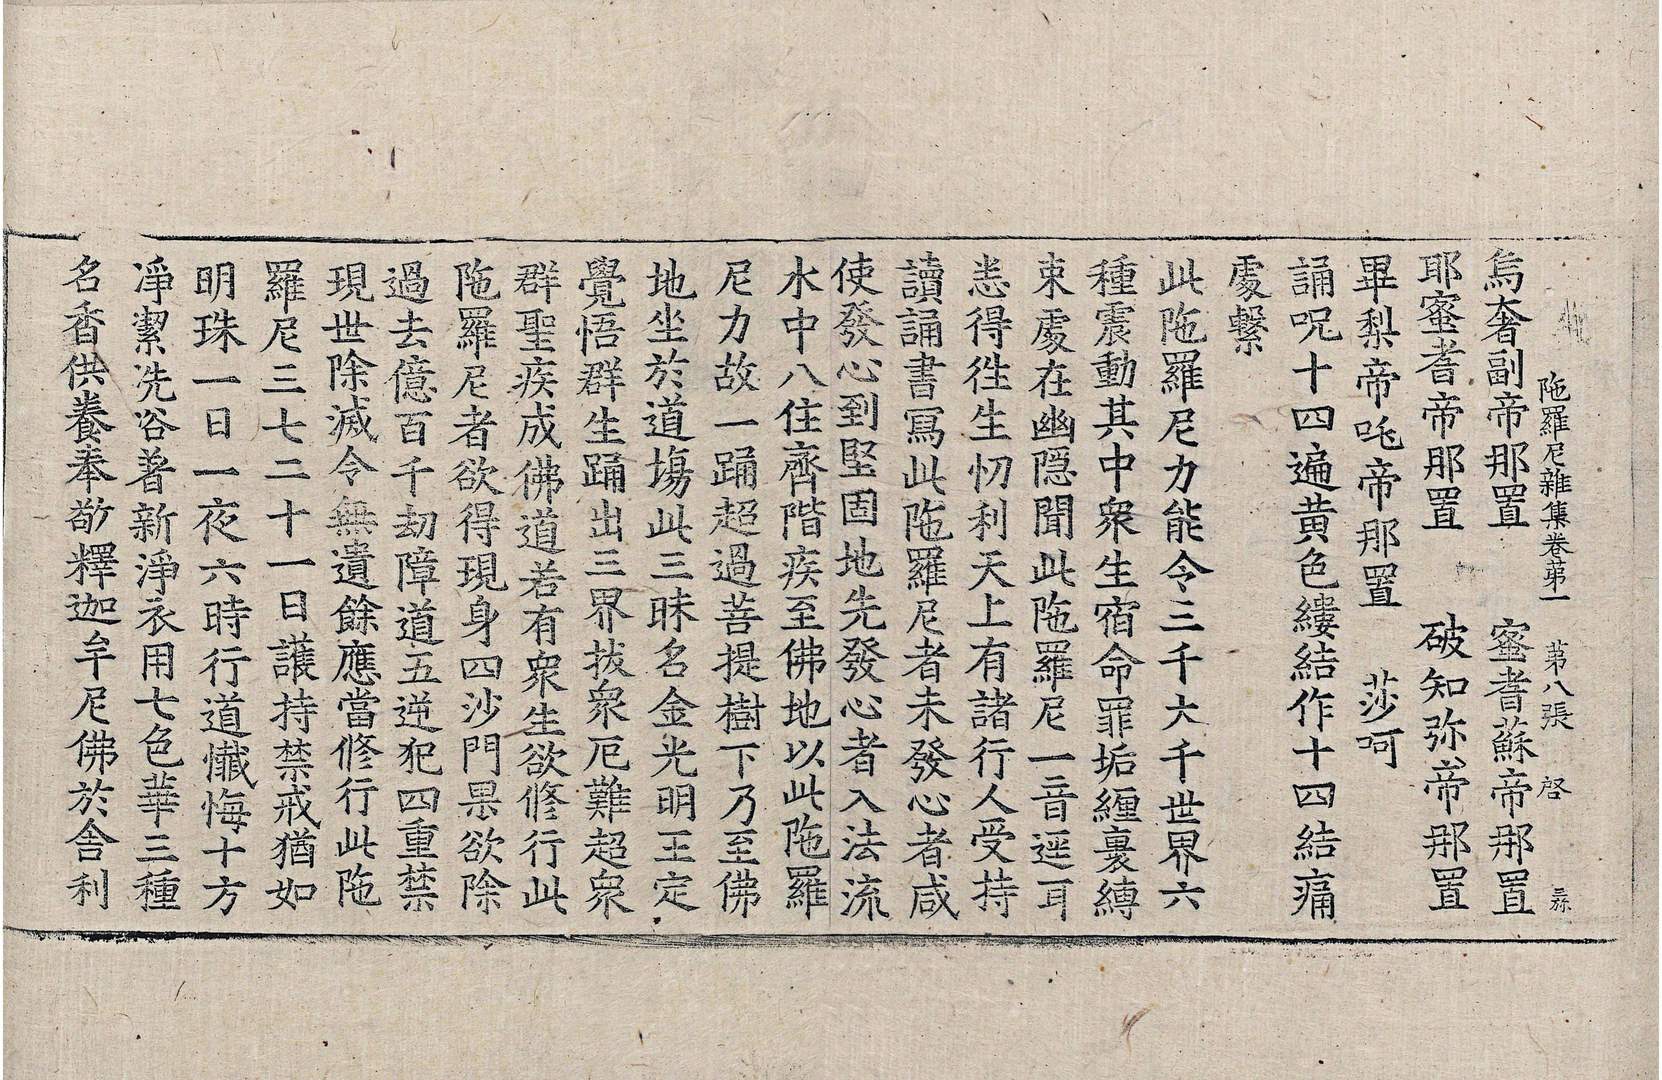 陁羅尼雜集卷苐一 苐八張 啓
烏奢副帝那置 蜜耆蘇帝那置
耶蜜耆帝那置 破知弥帝那置
畢梨帝吒帝那置 莎呵
誦呪十四遍黄色縷結作十四結痛
處繫
此陁羅尼力能令三千大千世界六
種震動其中衆生宿命罪垢纏裹縛
束處在幽隱聞此陁羅尼一音逕耳
恙得徃生忉利天上有諸行人受持
讀誦書寫此陁羅尼者未發心者咸
使發心到堅固地先發心者入法流
水中八住齊階疾至佛地以此陁羅
尼力故一踊超過菩提樹下乃至佛
地坐於道塲此三昧名金光明王定
覺悟群生踊出三界拔衆厄難超衆
群聖疾成佛道若有衆生欲修行此
陁羅尼者欲得現身四沙門果欲除
過去億百千劫障道五逆犯四重禁
現世除滅令無遺餘應當修行此陁
羅尼三七二十一日護持禁戒猶如
明珠一日一夜六時行道懺悔十方
淨潔洗浴著新淨衣用七色華三種
名香供養奉獻釋迦牟尼佛於舍利